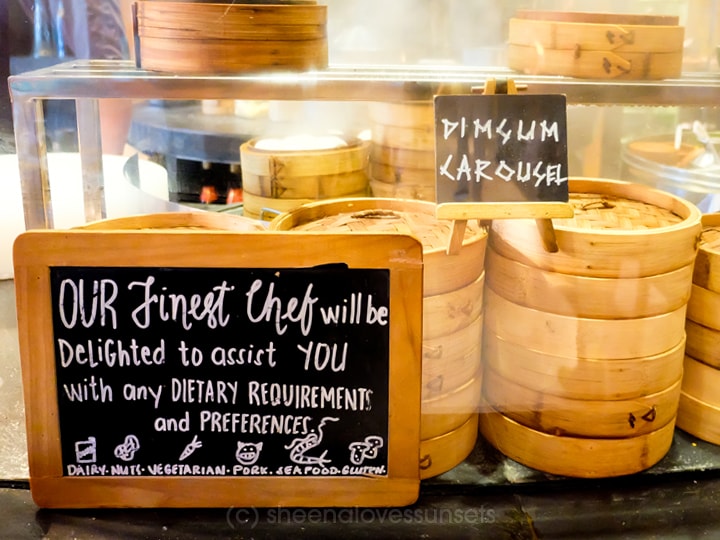 DIMSUM
CAROUSEL
OUR Finest Chef will be
DeliGhted to assist YOU
with any DIETARY REQUIREMENTS
and PREFERENCES.
DAIRY. NUTS. VEGETARIAN. PORK. SEAFOOD. GLUTEN.
(c) sheenalovessunsets